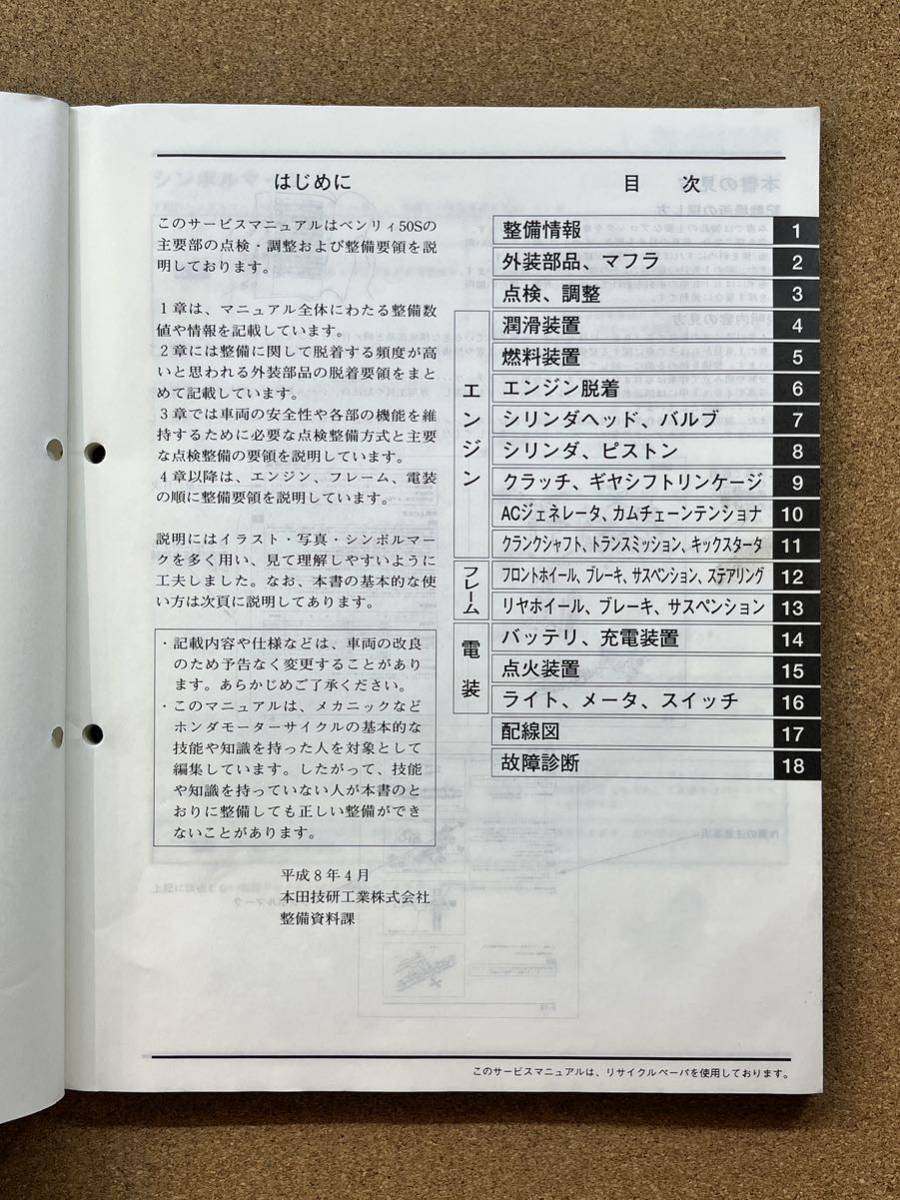 はじめに
このサービスマニュアルはベンリィ50Sの
主要部の点検・調整および整備要領を説
明しております。
1章は、マニュアル全体にわたる整備数
値や情報を記載しています。
2章には整備に関して脱着する頻度が高
いと思われる外装部品の脱着要領をまと
めて記載しています。
3章では車両の安全性や各部の機能を維
持するために必要な点検整備方式と主要
な点検整備の要領を説明しています。
4章以降は、エンジン、フレーム、電装
の順に整備要領を説明しています。
説明にはイラスト・写真・シンボルマー
クを多く用い、見て理解しやすいように
工夫しました。なお、本書の基本的な使
い方は次頁に説明してあります。
・記載内容や仕様などは、車両の改良
のため予告なく変更することがあり
ます。あらかじめご了承ください。
・このマニュアルは、メカニックなど
ホンダモーターサイクルの基本的な
技能や知識を持った人を対象として
編集しています。したがって、技能
や知識を持っていない人が本書のと
おりに整備しても正しい整備ができ
ないことがあります。
平成8年4月
本田技研工業株式会社
整備資料課
目 次
整備情報 1
外装部品、マフラ 2
点検、調整 3
エンジン
潤滑装置 4
燃料装置 5
エンジン脱着 6
シリンダヘッド、バルブ 7
シリンダ、ピストン 8
クラッチ、ギヤシフトリンケージ 9
ACジェネレータ、カムチェーンテンショナ 10
クランクシャフト、トランスミッション、キックスタータ 11
フレーム
フロントホイール、ブレーキ、サスペンション、ステアリング 12
リヤホイール、ブレーキ、サスペンション 13
電装
バッテリ、充電装置 14
点火装置 15
ライト、メータ、スイッチ 16
配線図 17
故障診断 18
このサービスマニュアルは、リサイクルペーパを使用しております。